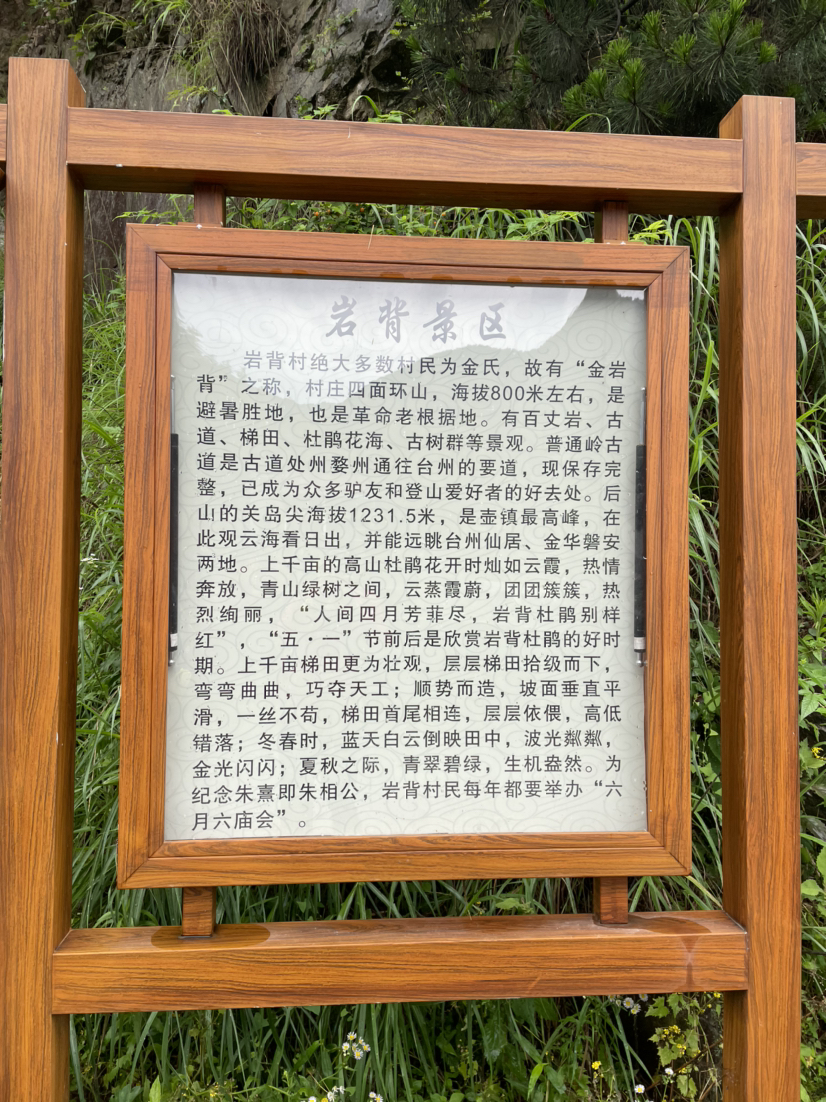 岩背景区
岩背村绝大多数村民为金氏，故有“金岩
背”之称，村庄四面环山，海拔800米左右，是
避暑胜地，也是革命老根据地。有百丈岩、古
道、梯田、杜鹃花海、古树群等景观。普通岭古
道是古道处州婺州通往台州的要道，现保存完
整，已成为众多驴友和登山爱好者的好去处。后
山的关岛尖海拔1231.5米，是壶镇最高峰，在
此观云海看日出，并能远眺台州仙居、金华磐安
两地。上千亩的高山杜鹃花开时灿如云霞，热情
奔放，青山绿树之间，云蒸霞蔚，团团簇簇，热
烈绚丽，“人间四月芳菲尽，岩背杜鹃别样
红”，“五·一”节前后是欣赏岩背杜鹃的好时
期。上千亩梯田更为壮观，层层梯田拾级而下，
弯弯曲曲，巧夺天工；顺势而造，坡面垂直平
滑，一丝不苟，梯田首尾相连，层层依偎，高低
错落；冬春时，蓝天白云倒映田中，波光粼粼，
金光闪闪；夏秋之际，青翠碧绿，生机盎然。为
纪念朱熹即朱相公，岩背村民每年都要举办“六
月六庙会”。